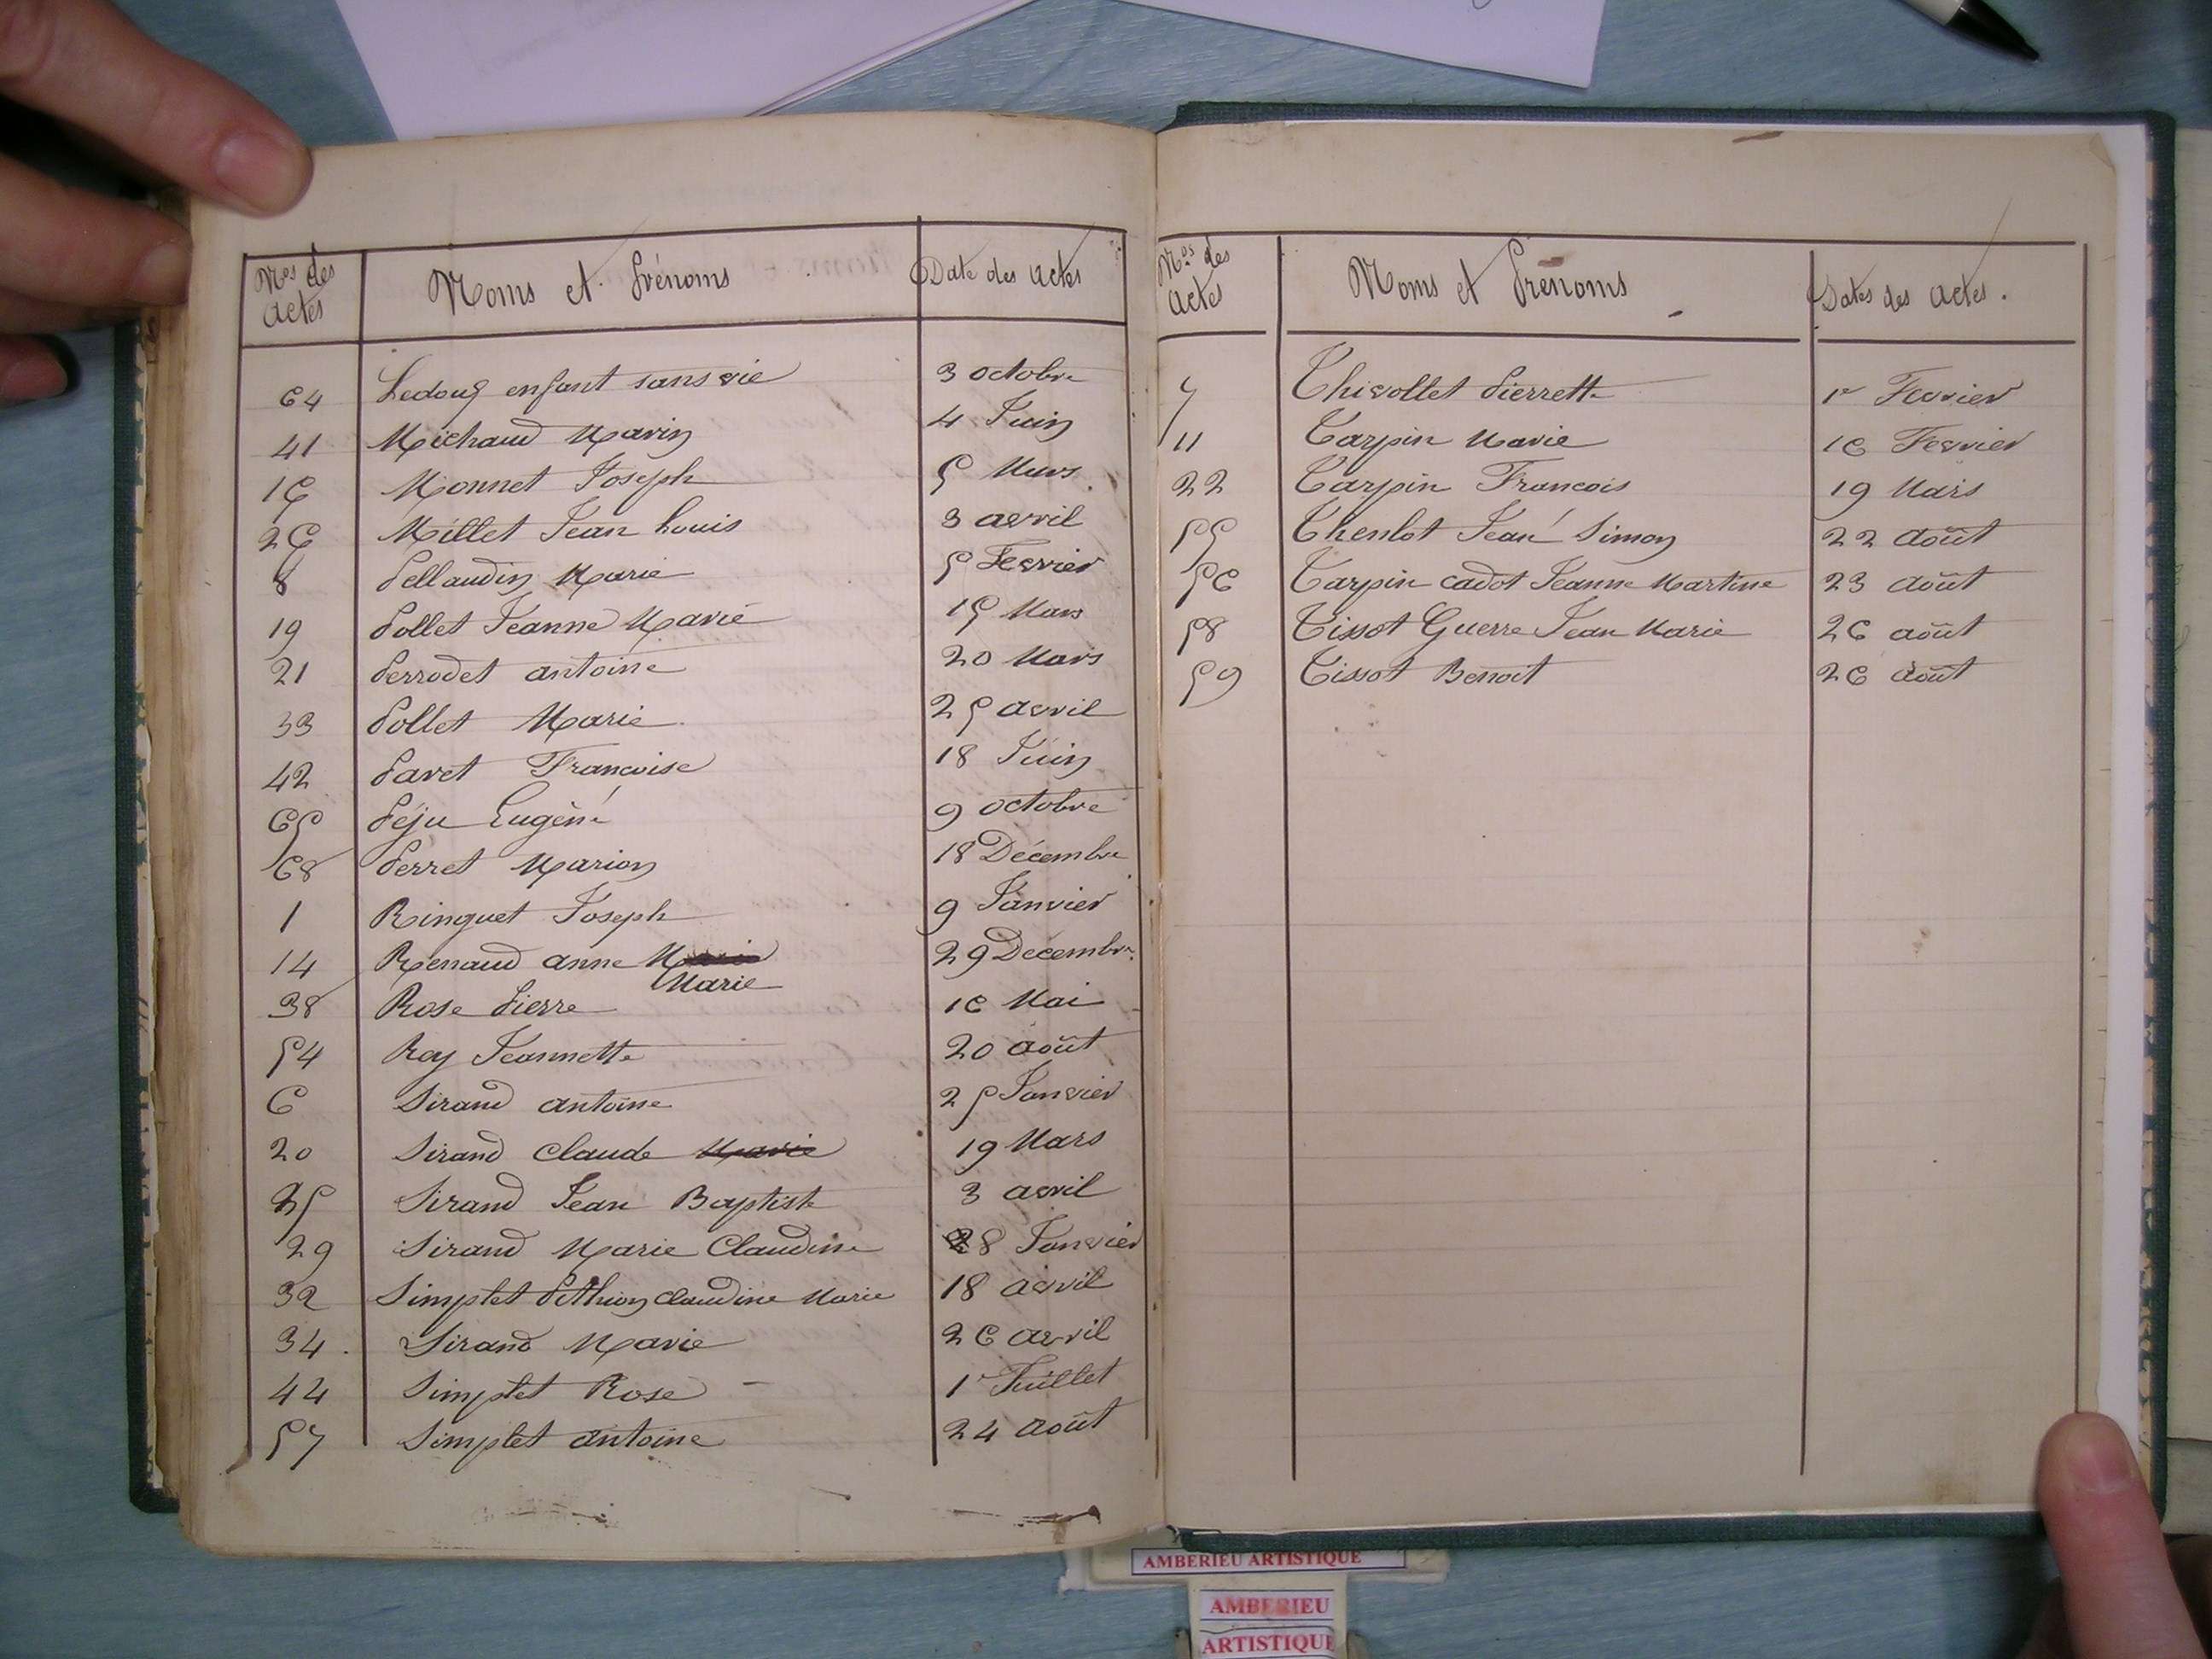 Nos des Actes | Noms et Prénoms | Date des Actes
64 Ledoux enfant sans vie 3 octobre
41 Michaud Marin 4 Juin
16 Monnet Joseph 5 Mars
26 Millet Jean Louis 3 avril
8 Pellaudin Marie 5 Fevrier
19 Pollet Jeanne Marie 15 Mars
21 Perrodet antoine 20 Mars
33 Pollet Marie 25 avril
42 Pavet Francoise 18 Juin
65 Péju Eugène 9 octobre
68 Perret Marion 18 Décembre
1 Ringuet Joseph 9 Janvier
14 Renaud anne Marie 29 Décembre
Marie
38 Rose Pierre 16 Mai
54 Rey Jeannette 20 août
6 Sirand antoine 25 Janvier
20 Sirand Claude Marie 19 Mars
25 Sirand Jean Baptiste 3 avril
29 Sirand Marie Claudine 28 Janvier
32 Simplet Pethion Claudine Marie 18 avril
34 Sirand Marie 26 avril
44 Simplet Rose 1r Juillet
57 Simplet antoine 24 août
Nos des Actes | Noms et Prénoms | Dates des Actes.
7 Thivollet Pierrette 1r Fevrier
11 Tarpin Marie 16 Fevrier
22 Tarpin Francois 19 Mars
55 Jean Simon 22 août
56 Tarpin cadot Jeanne Martine 23 août
58 Tissot Guerre Jean Marie 26 août
59 Tissot Benoit 26 août
AMBERIEU ARTISTIQUE
AMBERIEU
ARTISTIQUE